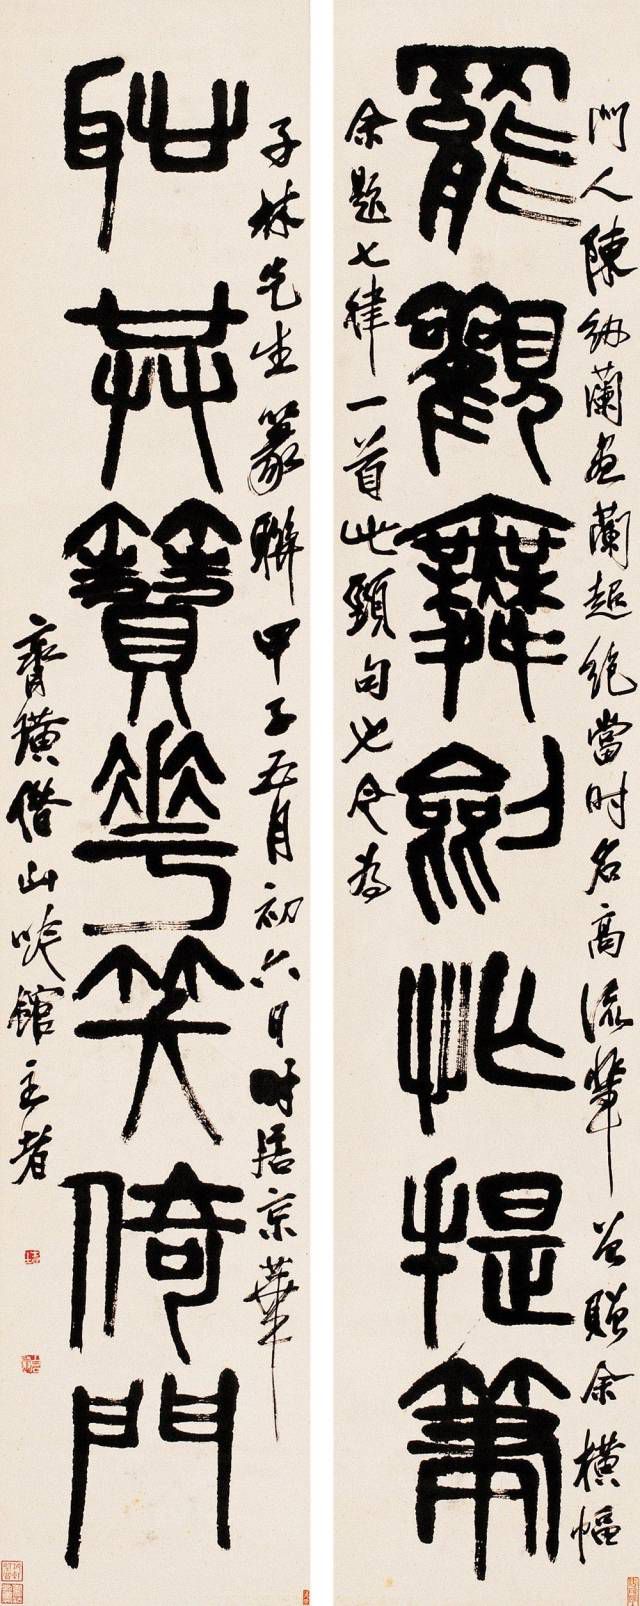 門人陳紉蘭畫蘭超絕當时名高流輩曾贈余橫幅
罷觀舞劍忙提筆
余題七律一首此頸句也今為
子林先生篆聯甲子五月初六日时居京華
恥共簪花笑倚門
齊璜借山吟館主者